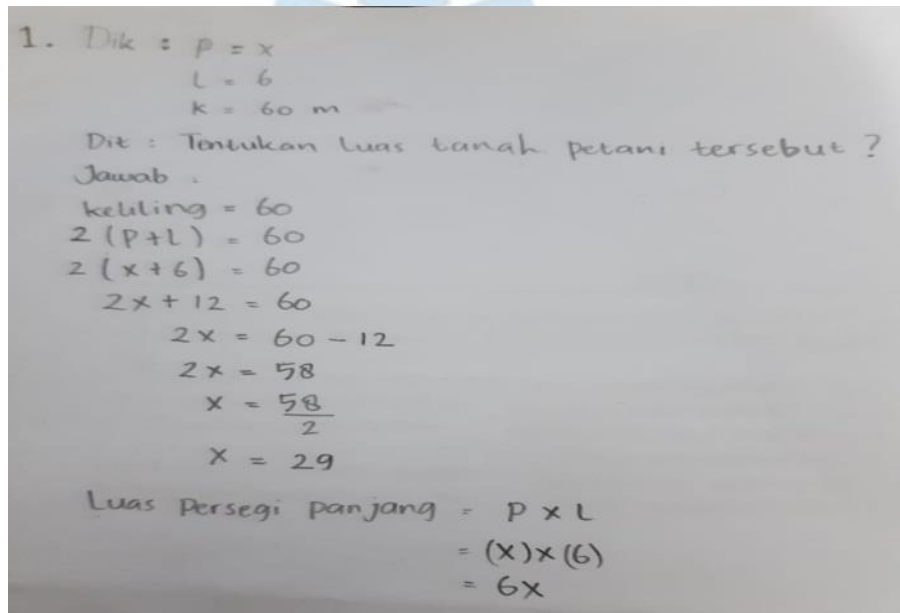 1. Dik : p = x
l = 6
k = 60 m
Dit : Tentukan luas tanah petani tersebut ?
Jawab .
keliling = 60
2 (P+L) = 60
2 (x+6) = 60
2x + 12 = 60
2x = 60 - 12
2x = 58
x = 58
2
x = 29
Luas persegi panjang = P x L
= (x) x (6)
= 6x